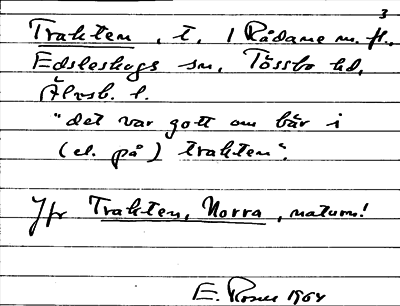 3
Trakten, t. i Rådane m. fl.,
Edsleskogs sn, Tössbo hd,
Älvsb. l.
"det var gott om bär i
(el. på) trakten".
Jfr Trakten, Norra, naturn!
E. Rosen 1964